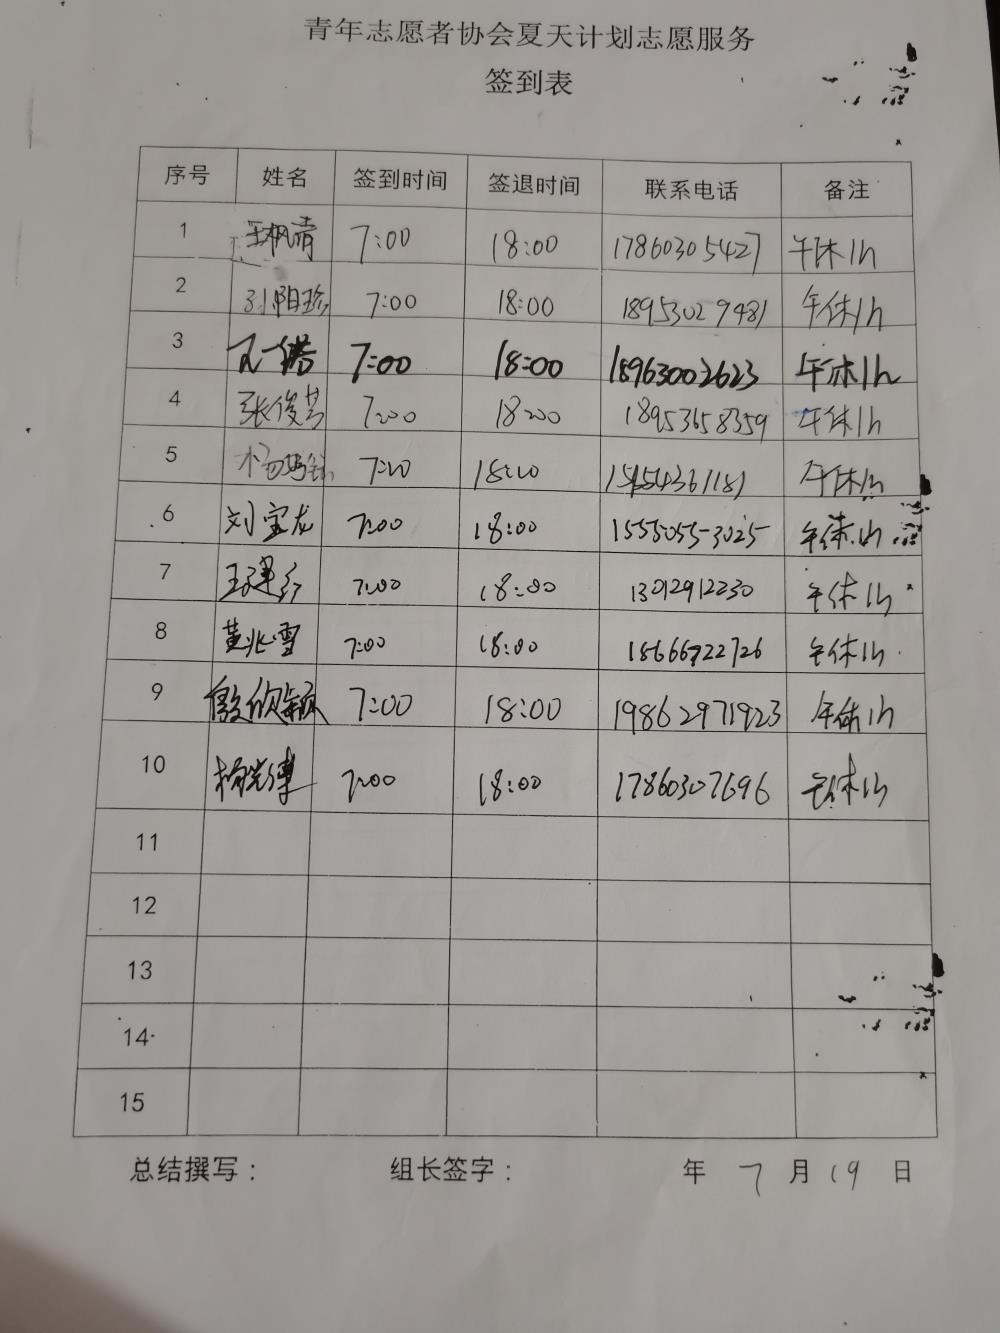 青年志愿者协会夏天计划志愿服务
签到表
序号 姓名 签到时间 签退时间 联系电话 备注
1 王枫清 7:00 18:00 17860305427 午休1h
2 刘阳珍 7:00 18:00 18953029481 午休1h
3 7:00 18:00 18963002623 午休1h
4 张俊芳 7:00 18:00 18953658359 午休1h
5 7:00 18:00 15154361181 午休1h
6 刘宝龙 7:00 18:00 15550553025 午休1h
7 7:00 18:00 13012912230 午休1h
8 黄兆雪 7:00 18:00 18666922726 午休1h
9 7:00 18:00 19862971923 午休1h
10 7:00 18:00 17860307696 午休1h
11
12
13
14
15
总结撰写： 组长签字： 年 7 月 19 日